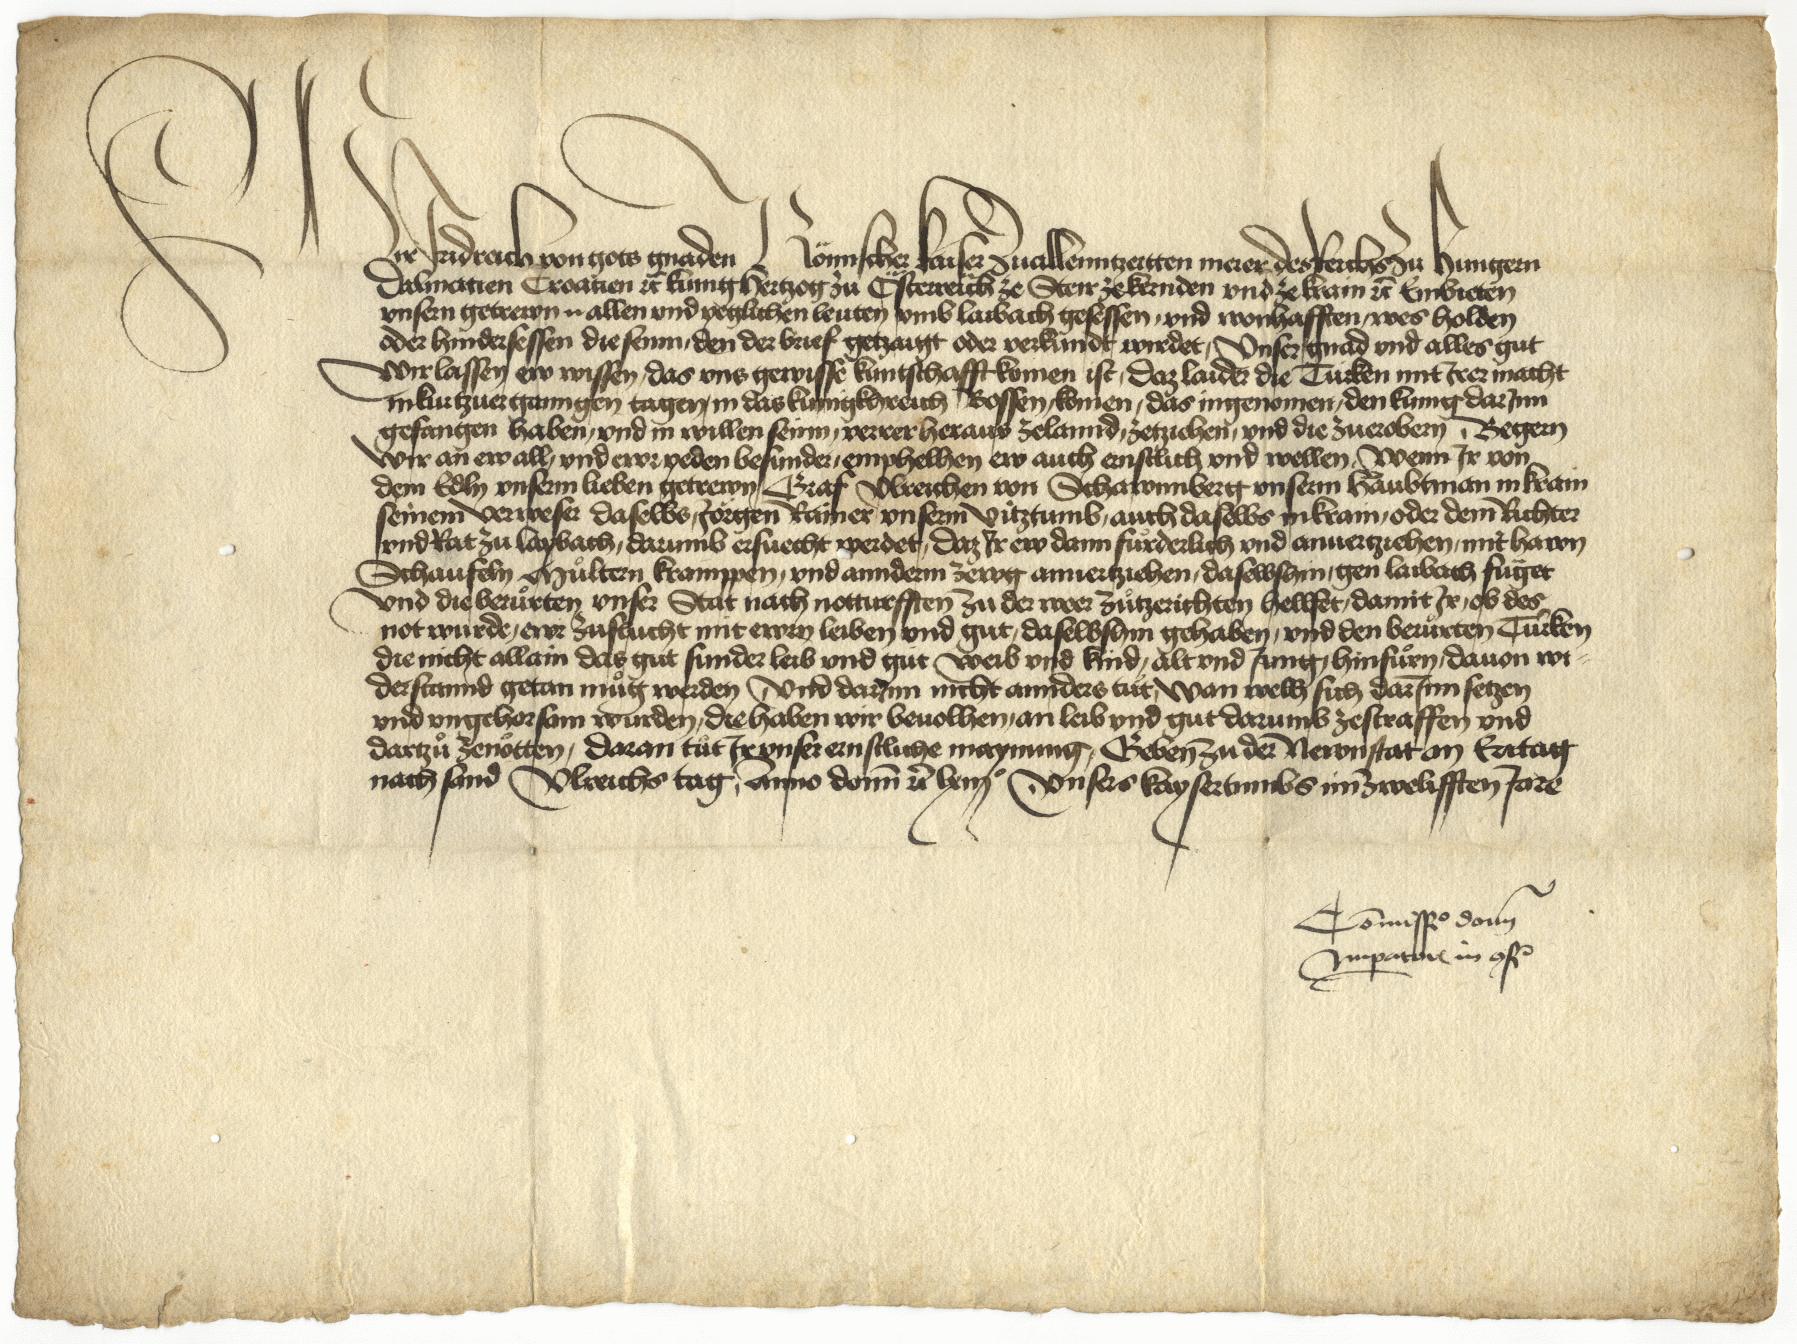 Wir Fridreich von gots gnaden Römischer kaiser zuallenntzeitten merer des Reichs zu Hungern
Dalmatien Croatien ⁊c̄ kunig Hertzog zu Österreich ze Steir ze kernden vnd ze krain ⁊c̄ Embieten
vnsern getrewn n allen vnd yeglichen leuten vmb laibach gesessen, vnd wonhafften, wes holden
oder hindersessen die seinn, den der brief getzaigt oder verkundt wirdet, Vnser gnad vnd alles gut
Wir lassen ew wissen, das vns gewisse kuntschafft komen ist, daz laider die Türken mit Irer macht
in kurtzuerganngen tagen, in das kunigkreich Bossen, komen, das ingenomen, den kunig darInn
gefangen haben, vnd in willen seinn, verrer heraus zelannd, zetziehen, vnd die zuerobern, Begern
Wir an ew all, vnd ewr yeden besunder, emphelhen ew auch ernstlich vnd wellen, Wenn Ir von
dem Edln vnserm lieben getrewn Graf Vlreichen von Schawnnberg vnserm Haubtman in krain
seinem verweser daselbs, Jörgen Rainer vnserm vitztumb, auch daselbs in krain, oder dem Richter
vnd Rat zu laybach, darumb ersuecht werdet, daz Ir ew dann fürderlich vnd anuertziehen, mit hawn
Schaufeln Mültern krampen, vnd annderm zewg anuertziehen, daselbshin, gen laibach füget
vnd die berürten vnser Stat nach notturfften zu der weer zůtzerichten helffet, damit Ir, ob des
not wurde, ewr zuflucht mit ewrn leiben vnd gut, daselbshin gehaben, vnd den berürten Türken
die nicht allain das gut sunder leib vnd gut Weib vnd kind, alt vnd Jung, hinfürn, dauon wi-
derstannd getan müg werden, Vnd darInn nicht annders tut, Wan welh sich darInn setzen
vnd vngehorsam wurden, die haben wir beuolhen, an leib vnd gut darumb zestraffen vnd
dartzů zenötten, daran tůt Ir vnser ernstliche maynung, Geben zu der Newnstat an Eritag
nach sand Vlreichs tag, Anno domī ⁊c̄ lxiij° Vnsers kaysertumbs im zwelifften Jare
Com̄issio domi
Imperatoris in cons°